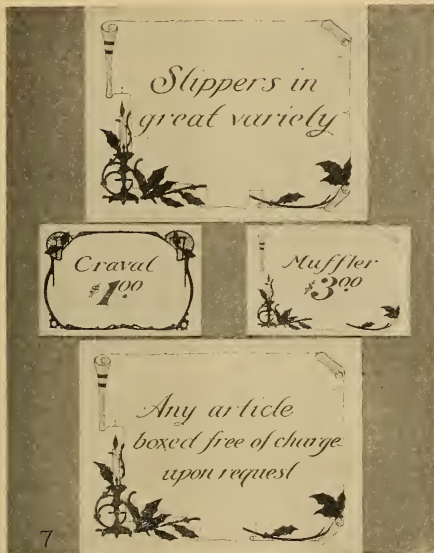 Slippers in
great variety
Cravat
$1.00
Muffler
$3.00
Any article
boxed free of charge
upon request
7